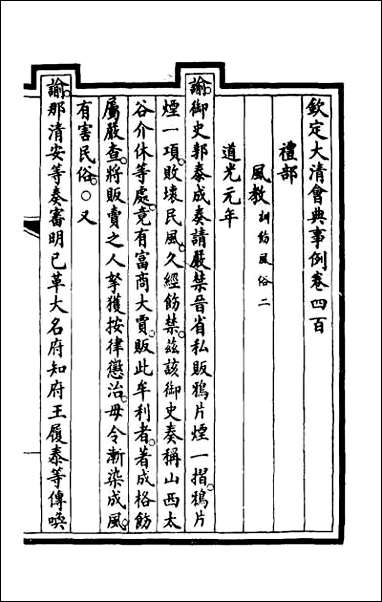 欽定大清會典事例卷四百
禮部
風教訓飭風俗二
道光元年
諭御史郭泰成奏請嚴禁晉省私販鴉片煙一摺鴉片
煙一項敗壞民風久經飭禁茲該御史奏稱山西太
谷介休等處竟有富商大賈販此牟利者著成格飭
屬嚴查將販賣之人拏獲按律懲治毋令漸染成風
有害民俗○又
諭那清安等奏審明已革大名府知府王履泰等傳喚